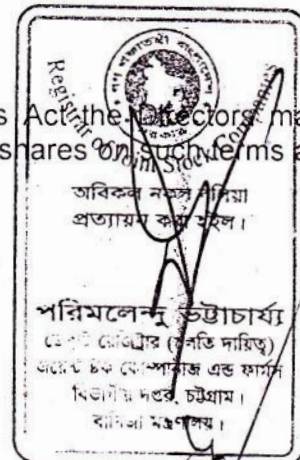 গণপ্রজাতন্ত্রী বাংলাদেশ
সরকার
Registrar of Joint Stock Companies
s Act the Directors ma
shares on such terms a
অবিকল নকল বলিয়া
প্রত্যায়ন করা হইল।
পরিমলেন্দু ভট্টাচার্য্য
ডেপুটি রেজিষ্ট্রার (চলতি দায়িত্ব)
জয়েন্ট ষ্টক কোম্পানীজ এন্ড ফার্মস
বিভাগীয় দপ্তর, চট্টগ্রাম।
বাণিজ্য মন্ত্রণালয়।